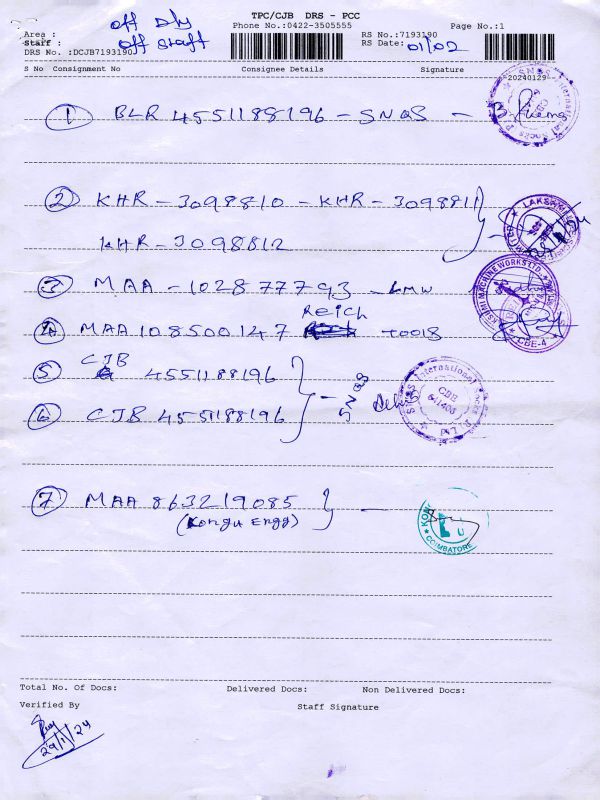 TPC/CJB DRS - PCC
Phone No.:0422-3505555
Page No.:1
Area : off Dly
Staff : off staff
RS No.:7193190
RS Date: 01/02
DRS No. :DCJB7193190
S No Consignment No Consignee Details Signature
20240129
1 BLR 4551188196 - SNQS -
2 KHR - 3098810 - KHR - 3098811
KHR - 3098812
3 MAA - 1028777793 - LMW
4 MAA 108500147 Reich Tools
5 CJB 4551188196
6 CJB 4551188196
SNQS
SNQS International Socks P. Ltd
CBE 641403
7 MAA 863219085
(Kongu Engg)
COIMBATORE
CBE-4
Total No. Of Docs: Delivered Docs: Non Delivered Docs:
Verified By Staff Signature
29/1/24